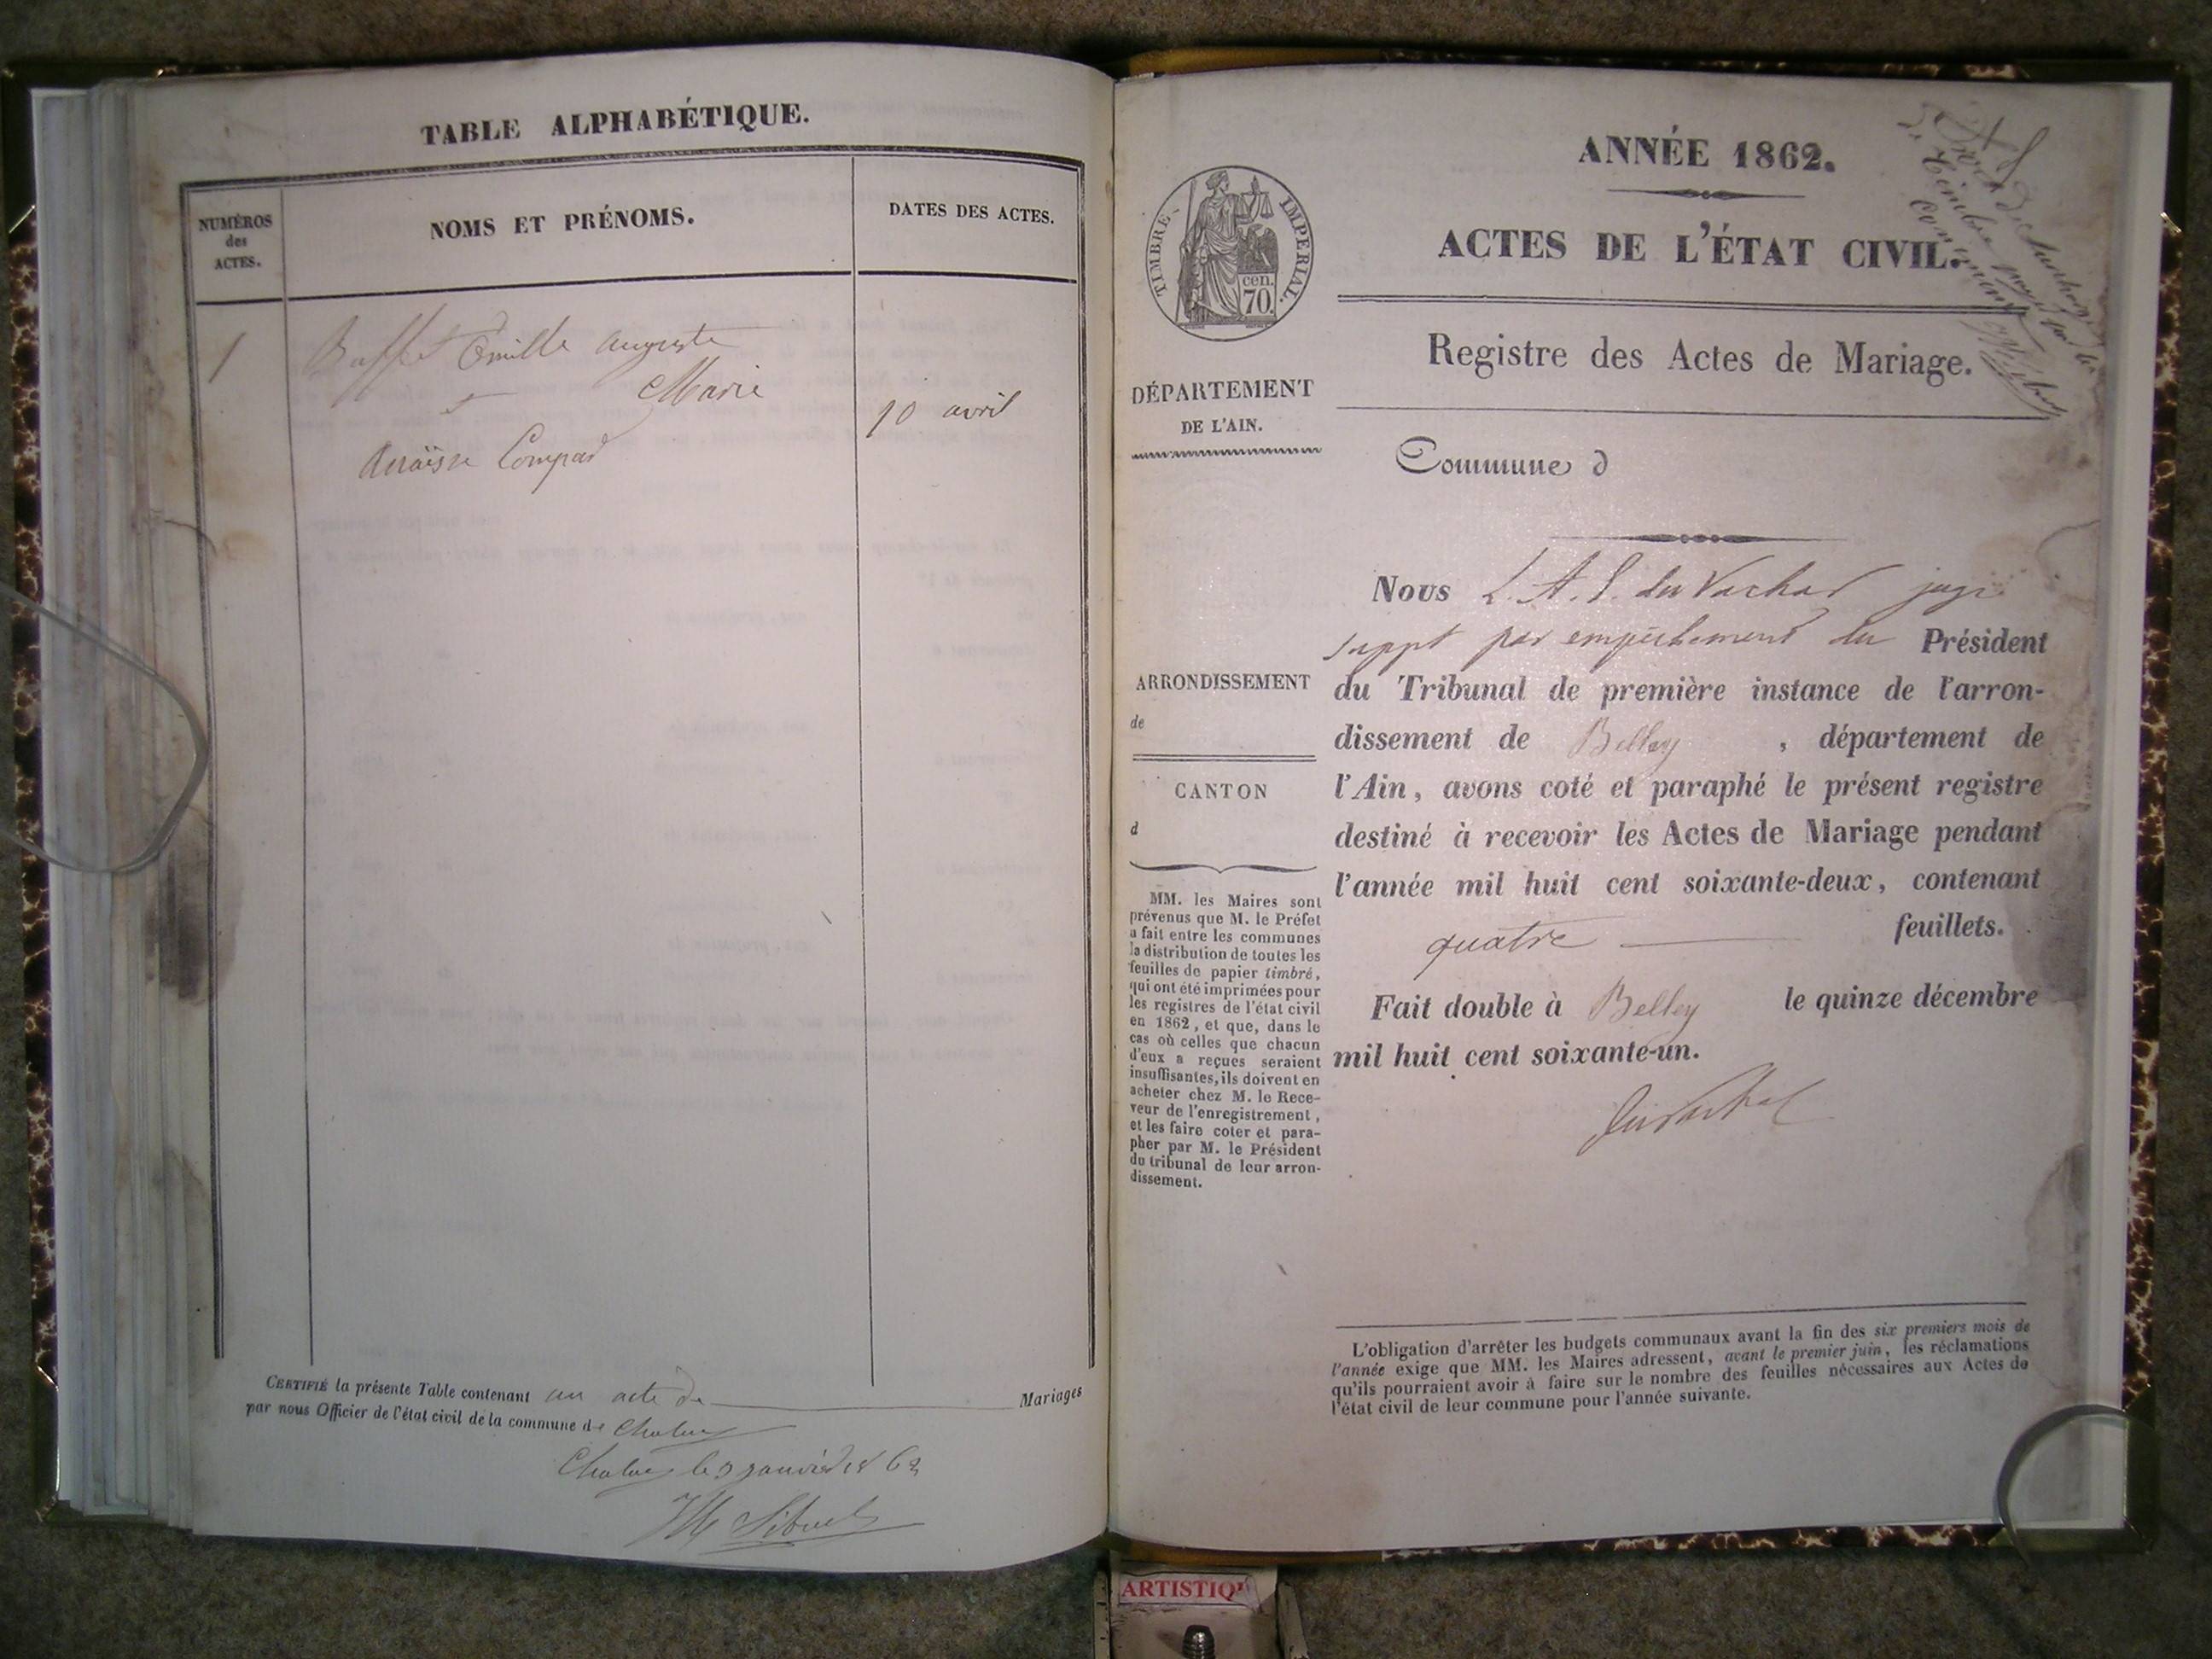 TABLE ALPHABÉTIQUE.
NUMÉROS
des
ACTES.
NOMS ET PRÉNOMS.
DATES DES ACTES.
1
Buffet Emille Auguste
Marie
10 avril
Compard
CERTIFIÉ la présente Table contenant un acte de Mariages
par nous Officier de l'état civil de la commune de
le 3 janvier 186
ANNÉE 1862.
ACTES DE L'ÉTAT CIVIL.
TIMBRE IMPERIAL.
cen.
70.
Registre des Actes de Mariage.
DÉPARTEMENT
DE L'AIN.
Commune d
Nous L. A. S. du Vachat juge
suppt par empêchement du Président
du Tribunal de première instance de l'arron-
dissement de Belley , département de
l'Ain, avons coté et paraphé le présent registre
destiné à recevoir les Actes de Mariage pendant
l'année mil huit cent soixante-deux, contenant
quatre feuillets.
Fait double à Belley le quinze décembre
mil huit cent soixante-un.
ARRONDISSEMENT
de
CANTON
d
MM. les Maires sont
prévenus que M. le Préfet
a fait entre les communes
la distribution de toutes les
feuilles de papier timbré,
qui ont été imprimées pour
les registres de l'état civil
en 1862, et que, dans le
cas où celles que chacun
d'eux a reçues seraient
insuffisantes, ils doivent en
acheter chez M. le Rece-
veur de l'enregistrement,
et les faire coter et para-
pher par M. le Président
du tribunal de leur arron-
dissement.
L'obligation d'arrêter les budgets communaux avant la fin des six premiers mois de
l'année exige que MM. les Maires adressent, avant le premier juin, les réclamations
qu'ils pourraient avoir à faire sur le nombre des feuilles nécessaires aux Actes de
l'état civil de leur commune pour l'année suivante.
ARTISTIQU